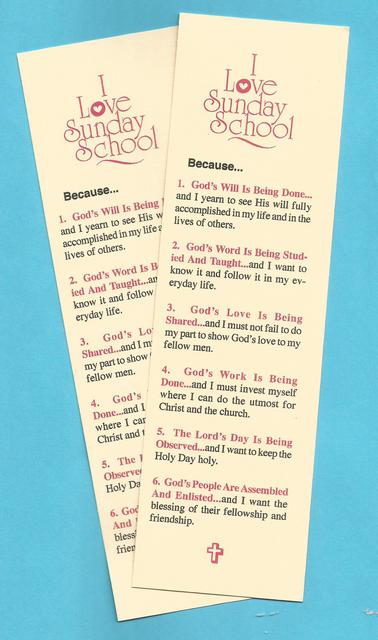 I
Love
Sunday
School
Because...
1. God's Will Is Being
and I yearn to see His w
accomplished in my life a
lives of others.
2. God's Word Is B
ied And Taught...an
know it and follow
eryday life.
3. God's Lo
Shared...and I m
my part to show
fellow men.
4. God's
Done...and I
where I can
Christ and t
5. The L
Observe
Holy Da
6. God
And
bless
frien
I
Love
Sunday
School
Because...
1. God's Will Is Being Done...
and I yearn to see His will fully
accomplished in my life and in the
lives of others.
2. God's Word Is Being Stud-
ied And Taught...and I want to
know it and follow it in my ev-
eryday life.
3. God's Love Is Being
Shared...and I must not fail to do
my part to show God's love to my
fellow men.
4. God's Work Is Being
Done...and I must invest myself
where I can do the utmost for
Christ and the church.
5. The Lord's Day Is Being
Observed...and I want to keep the
Holy Day holy.
6. God's People Are Assembled
And Enlisted...and I want the
blessing of their fellowship and
friendship.